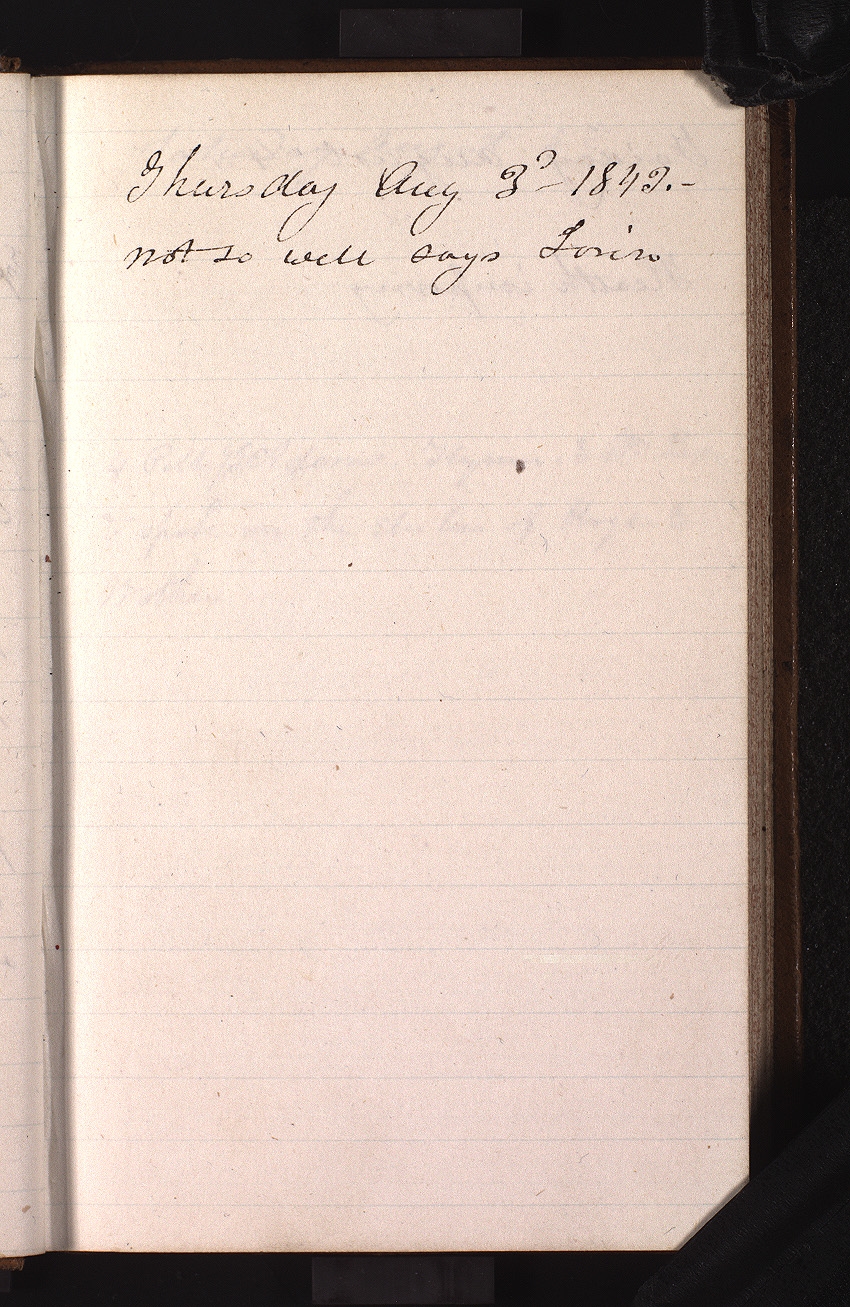 Thursday Aug 3d– 1843.–
not so well says Lorin